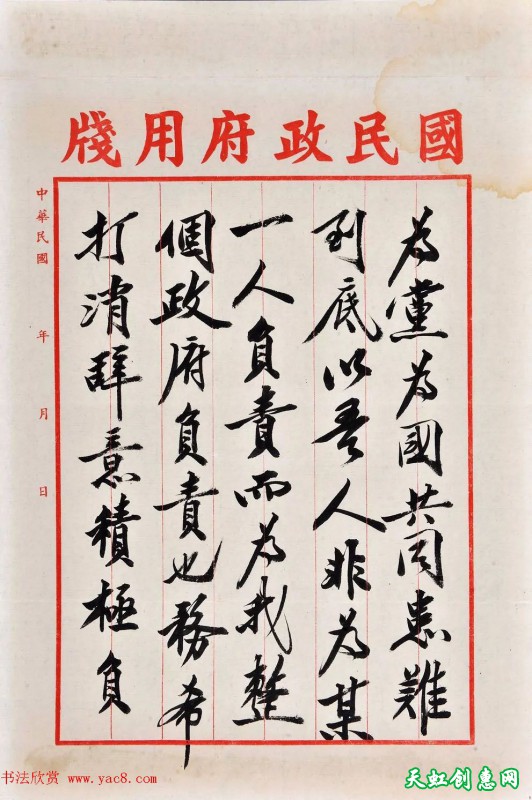 國民政府用牋
為黨為國共同患難
到底以吾人非為某
一人負責而為我整
個政府負責也務希
打消辭意積極負
中華民國 年 月 日
书法欣赏 www.yac8.com
天虹创惠网